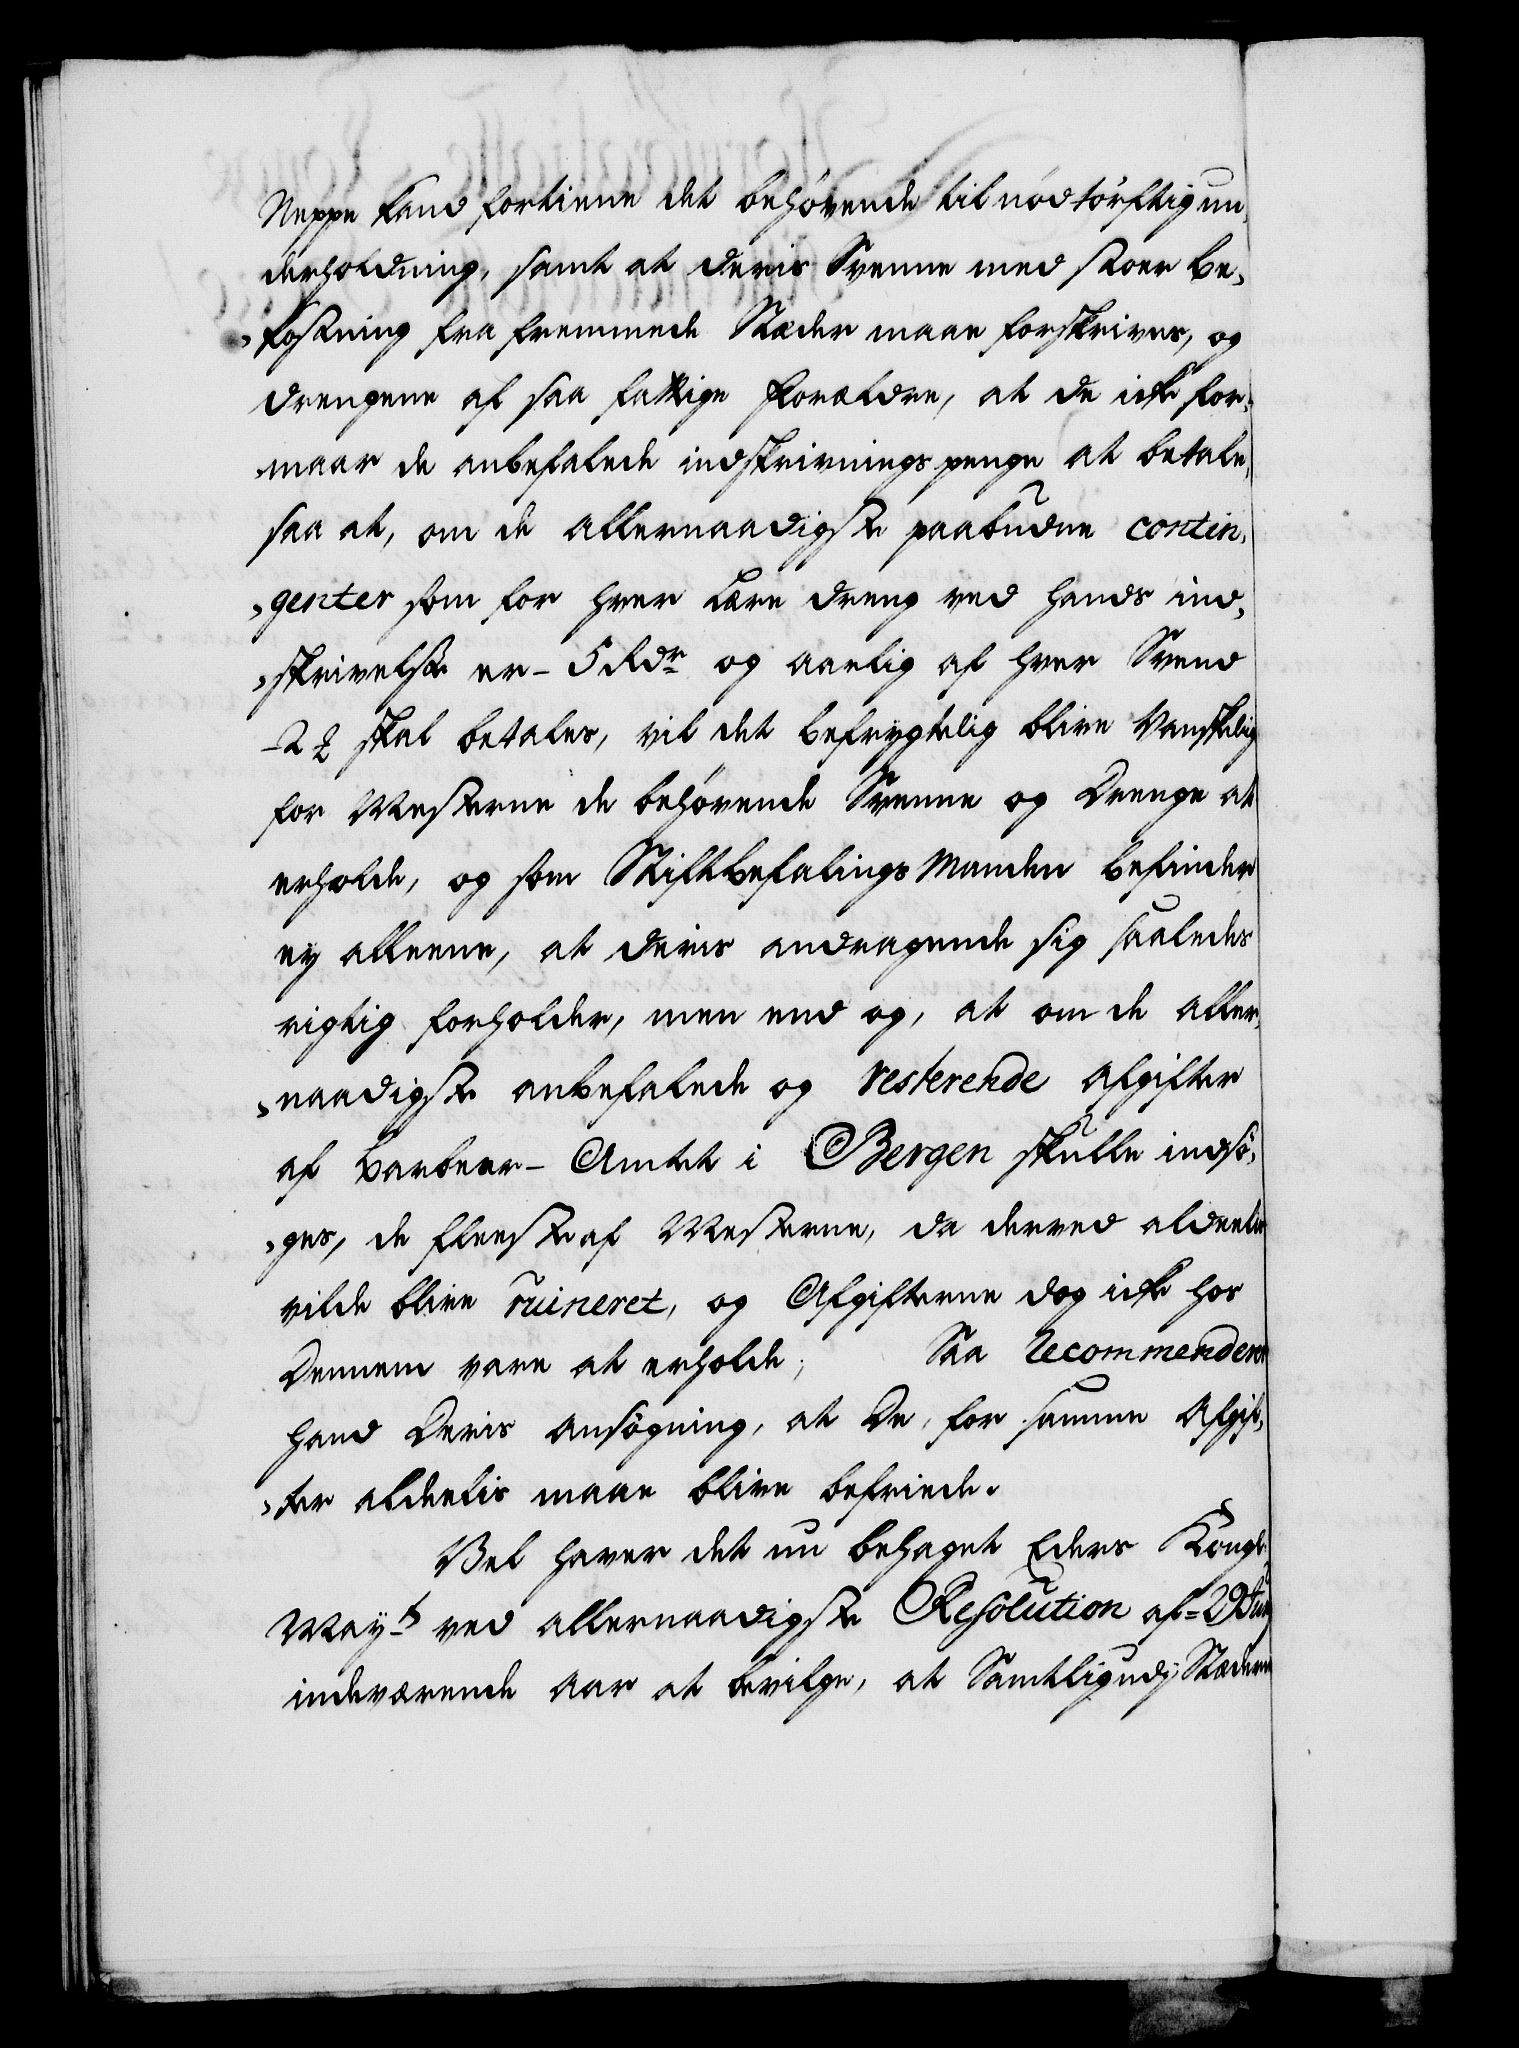 Neppe kand fortiene det behøvende til nødtørftig un,
derholdning, samt at deris Svenne med stoer be,
,kostning fra fremmede Stæder maae forskrives, og
drengene af saa fattige Forældre, at de icke for,
,maar de anbefalede indskrivnings penge at betale,
saa at, om de allernaadigste paabudne contin,
,genter som for hver Lære dreng ved hands ind,
,skrivelse er - 5 Rdr og aarlig af hver Svend
- 2 skal betales, vil det befrygtelig blive Vanskelig
for Mesterne de behøvende Svenne og Drenge at
erholde, og som Stiftbefalings Manden befinder
ey alleene, at deris andragende sig saaledes
rigtig forholder, men end og, at om de aller,
,naadigste anbefalede og resterende Afgifter
af Barbeer - Amtet i Bergen skulle indsø,
,ges, de fleeste af Mesterne, da derved aldeeles
vilde blive ruineret, og Afgifterne dog icke hos
Dennem vare at erholde; Saa Recommenderer
hand Deris ansøgning, at De, for samme Afgif,
,ter aldeelis maae blive befriede.
Vel haver det nu behaget Eders Kongl:
Mayts ved allernaadigste Resolution af
indeværende Aar at bevilge, at Samtlig udj Stæderne